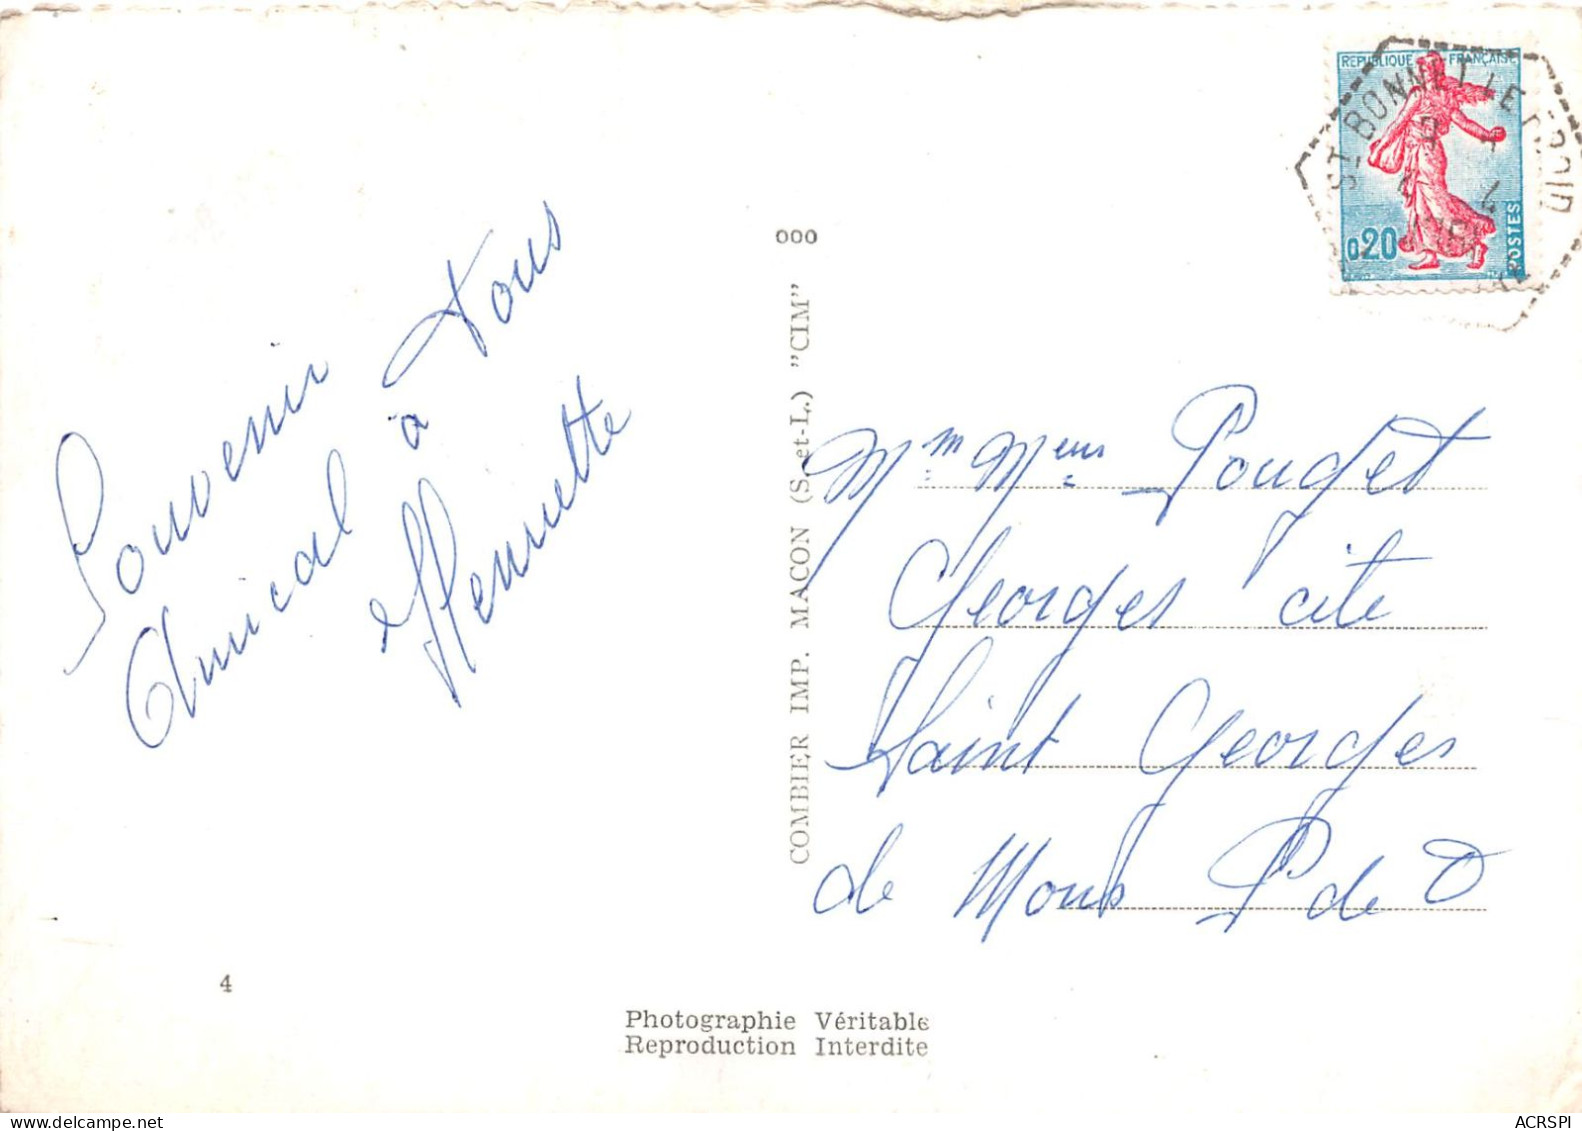 Souvenir
Amical à tous
Henriette
4
000
COMBIER IMP. MACON (S.-et-L.) "CIM"
REPUBLIQUE FRANÇAISE
0,20
POSTES
ST BONNET LE FROID
Mm Meur Pouget
Georges cite
Saint Georges
de Mons P de D
Photographie Véritable
Reproduction Interdite
ACRSPI